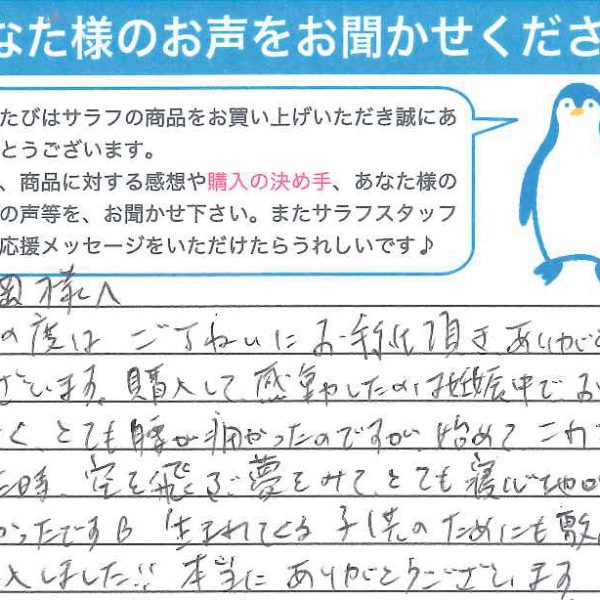 なた様のお声をお聞かせくださ
たびはサラフの商品をお買い上げいただき誠にあ
とうございます。
、商品に対する感想や購入の決め手、あなた様の
の声等を、お聞かせ下さい。またサラフスタッフ
応援メッセージをいただけたらうれしいです♪
様へ
の度は ごていねいにお手紙頂きありがと
ざいます。購入して、感激したのは妊娠中で、お
く、とても腰が痛かったのですが、始めて これで
た時、空を飛ぶ夢をみて、とても寝心地の
かったです 生まれてくる子供のためにも敷
入しました!! 本当にありがとうございます